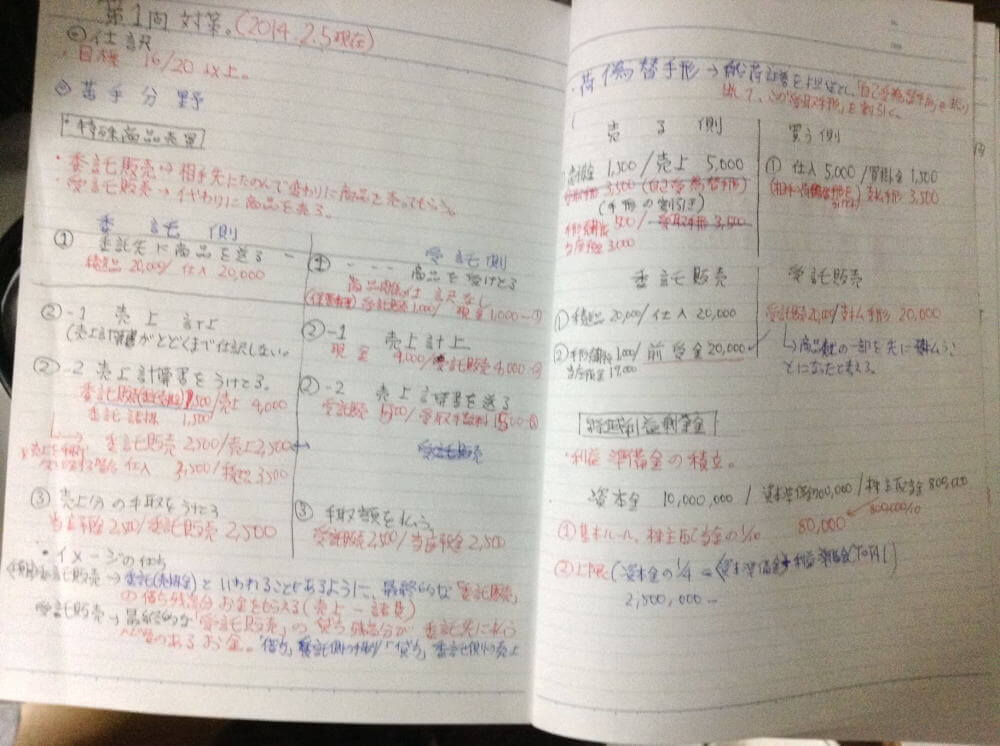 第1問対策。(2014.2.5現在)
◎仕訳
・目標 16/20 以上。
◎苦手分野
・特殊商品売買
・委託販売→相手先にたのんで変わりに商品を売ってもらう。
・受託販売→代わりに商品を売る。
委託側
① 委託先に商品を送る
積送品 20,000/仕入 20,000
②-1 売上計上
(売上計算書がとどくまで仕訳しない。
②-2 売上計算書をうけとる。
売上 4,000
1,500
委託販売 2,500/売上2,500
仕入 3,500/積送品 3,500
③ 売上分の手取をうけとる
当座預金 2,500/委託販売 2,500
受託側
① 商品を受けとる
仕訳なし
受託販売 1,000/現金 1,000
②-1 売上計上
現金 4,000/受託販売 4,000
②-2 売上計算書を送る
受託販売 1,500/受取手数料 1,500
受託販売
③ 手取額を払う。
受託販売 2,500/当座預金 2,500
・イメージの仕方
委託販売→委託(売掛金)といわれることがあるように、最終的な「委託販売」
の借方残高分お金をもらえる(売上-諸費)
受託販売→最終的な「受託販売」の貸方残高分が委託先に払う
必要のあるお金。
・荷為替手形→船荷証券を担保とし、「自己受為替手形」を
この「受取手形」を割引く。
売る側
売掛金 1,500/売上 5,000
受取手形 3,500 (自己受為替手形)
(手形の割引き)
500/受取手形 3,500
当座預金 3,000
買う側
① 仕入 5,000/買掛金 1,500
支払手形 3,500
委託販売
① 積送品 20,000/仕入 20,000
② 1,000/前受金 20,000
当座預金 19,000
受託販売
受託販売 20,000/支払手形 20,000
→商品の一部を先に払うこ
とになったと考える。
・利益準備金の積立。
資本金 10,000,000/資本準備金 700,000/株主配当金 800,000
800,000/10
80,000
①基本ルール、株主配当金の1/10
②上限(資本金の1/4
2,500,000